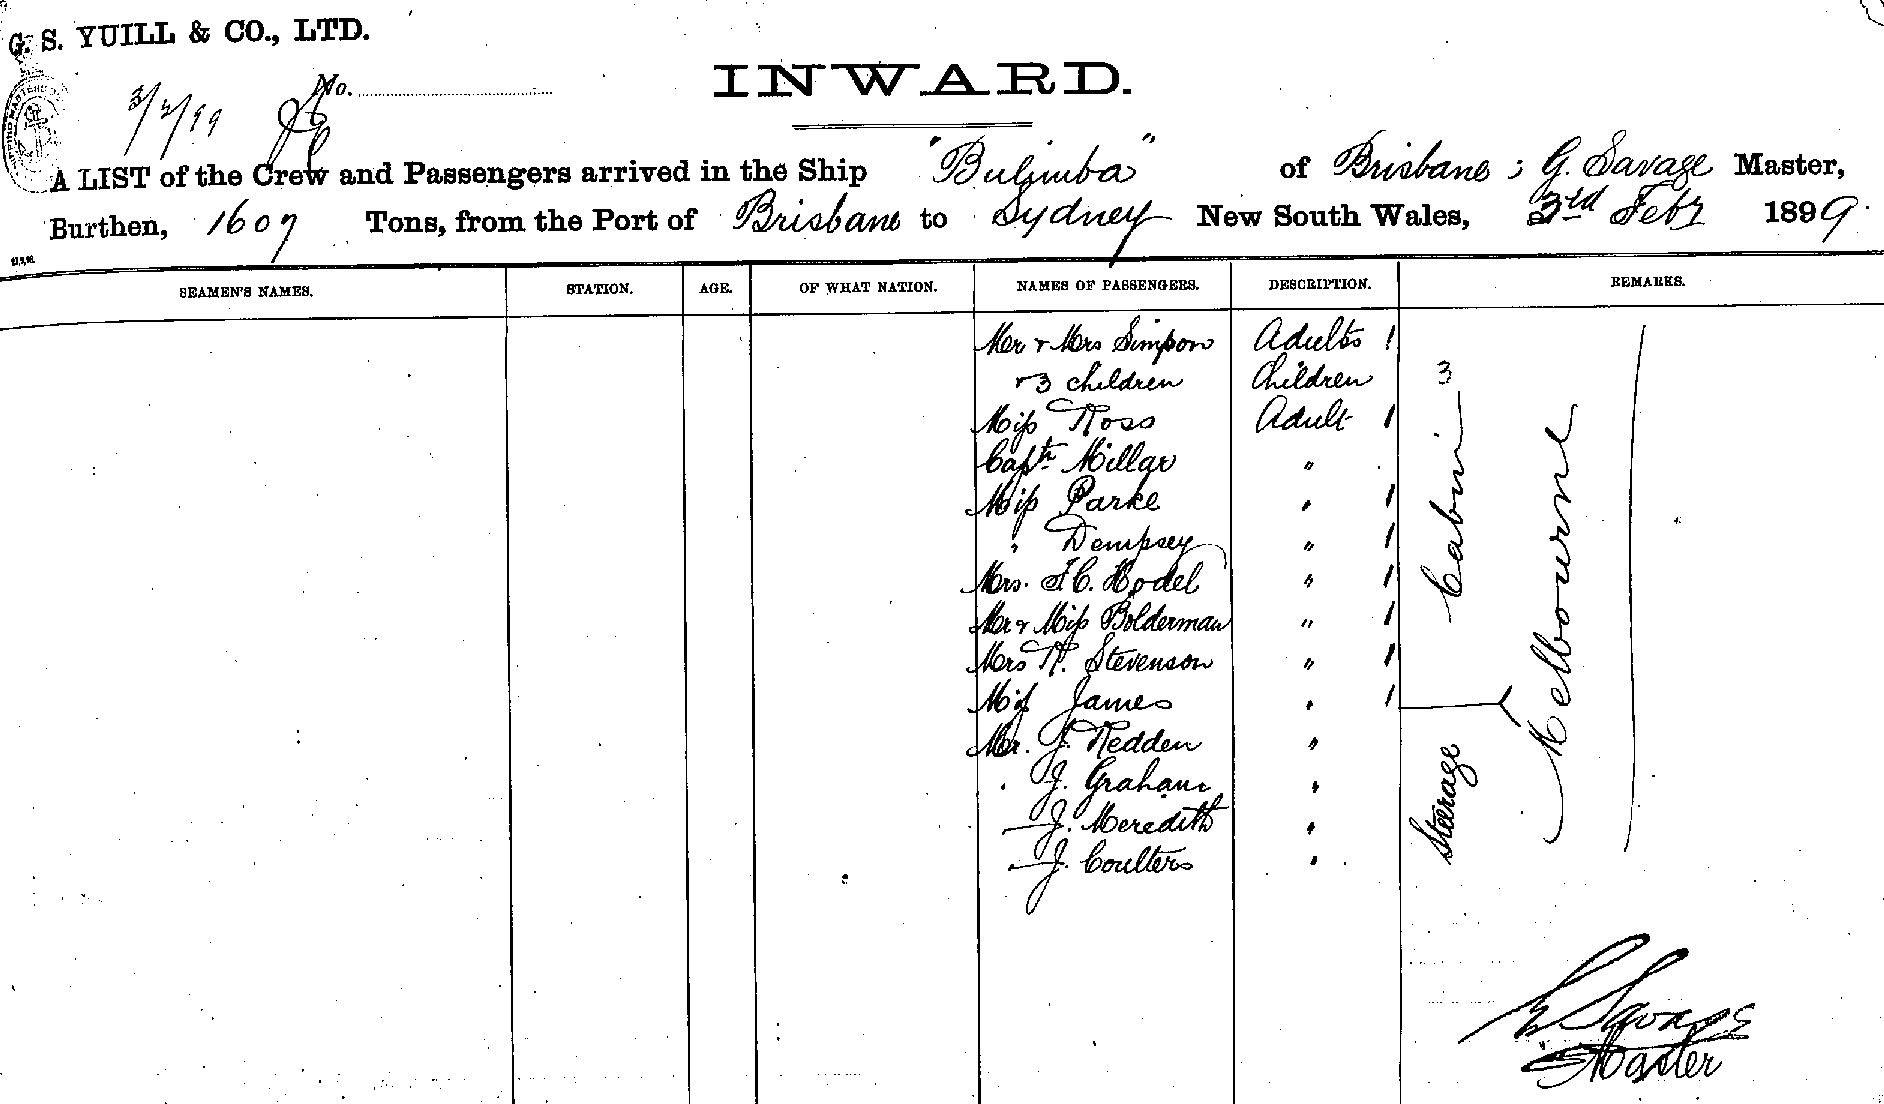 G. S. YUILL & CO., LTD.
INWARD.
No.
3/2/99
A LIST of the Crew and Passengers arrived in the Ship "Bulimba" of Brisbane; G. Savage Master,
Burthen, 1607 Tons, from the Port of Brisbane to Sydney New South Wales, 3rd Feby 1899.
SEAMEN'S NAMES. STATION. AGE. OF WHAT NATION. NAMES OF PASSENGERS. DESCRIPTION. REMARKS.
Mr & Mrs Simpson Adults 1
& 3 children Children 3
Miss Ross Adult 1
Captn Millar "
Miss Parke " 1
" Dempsey " 1
Mrs. F. C. Hodel " 1
Mr & Miss Bolderman " 1
Mrs R. Stevenson " 1
Miss James " 1
Mr. J. Redden "
" J. Graham "
— J. Meredith "
— J. Coulters "
Cabin
Steerage
Melbourne
G Savage
Master